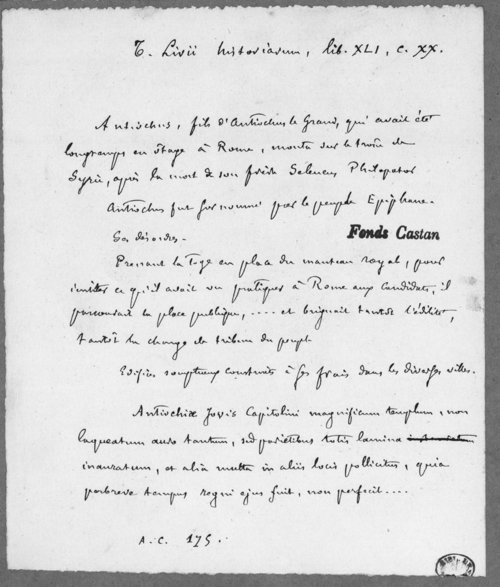 T. Livii historiarum, lib. XLI, c. XX.
Antiochus, fils d'Antiochus le Grand, qui avait été
longtemps en otage à Rome, monta sur le trône de
Syrie, après la mort de son frère Seleucus Philopator
Antiochus fut surnommé par le peuple Epiphane.
Ses désordres.
Fonds Castan
Prenant la toge en place du manteau royal, pour
imiter ce qu'il avait vu pratiquer à Rome aux candidats, il
parcourait la place publique, .... et briguait tantôt l'édilité,
tantôt la charge de tribun du peuple
Edifices somptueux construits à ses frais dans les diverses villes.
Antiochiæ Jovis Capitolini magnificum templum, non
laqueatum auro tantum, sed parietibus totis lamina
inauratum, et alia multa in aliis locis pollicitus, quia
perbreve tempus regni ejus fuit, non perfecit....
A.C. 175.